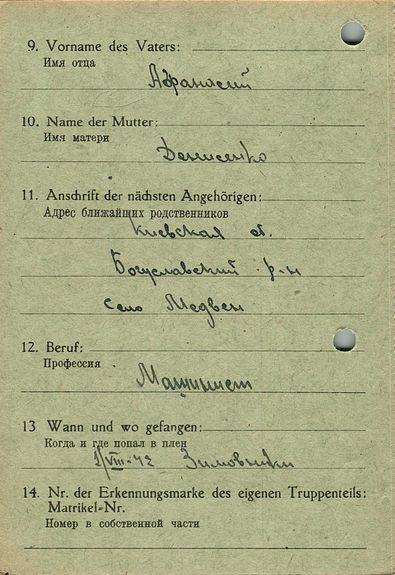 9. Vorname des Vaters:
Имя отца
Афанасий
10. Name der Mutter:
Имя матери
Денисенко
11. Anschrift der nächsten Angehörigen:
Адрес ближайщих родственников
Киевская об.
Богуславский р-н
село Медвен
12. Beruf:
Профессия
Машинист
13 Wann und wo gefangen:
Когда и где попал в плен
1/VIII-42 Зимовники
14. Nr. der Erkennungsmarke des eigenen Truppenteils:
Matrikel-Nr.
Номер в собственной части